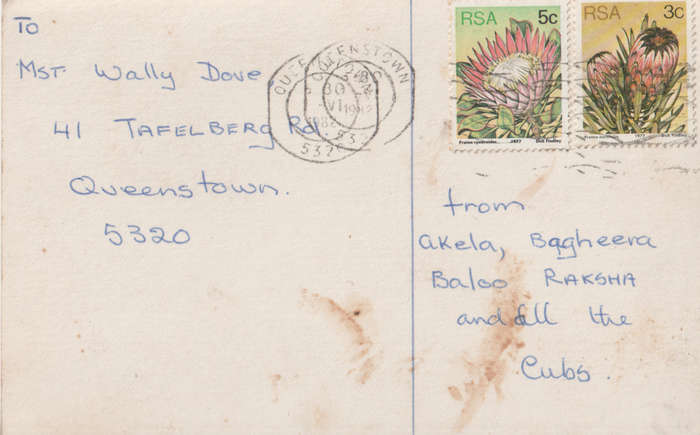 To
RSA 5c
RSA 3c
Mst Wally Dove
41 TAFELBERG Rd
Queenstown.
5320
QUEENSTOWN
5320
1977
Dick Findlay
1977
Dick Findlay
from
akela, Bagheera
Baloo RAKSHA
and all the
Cubs.